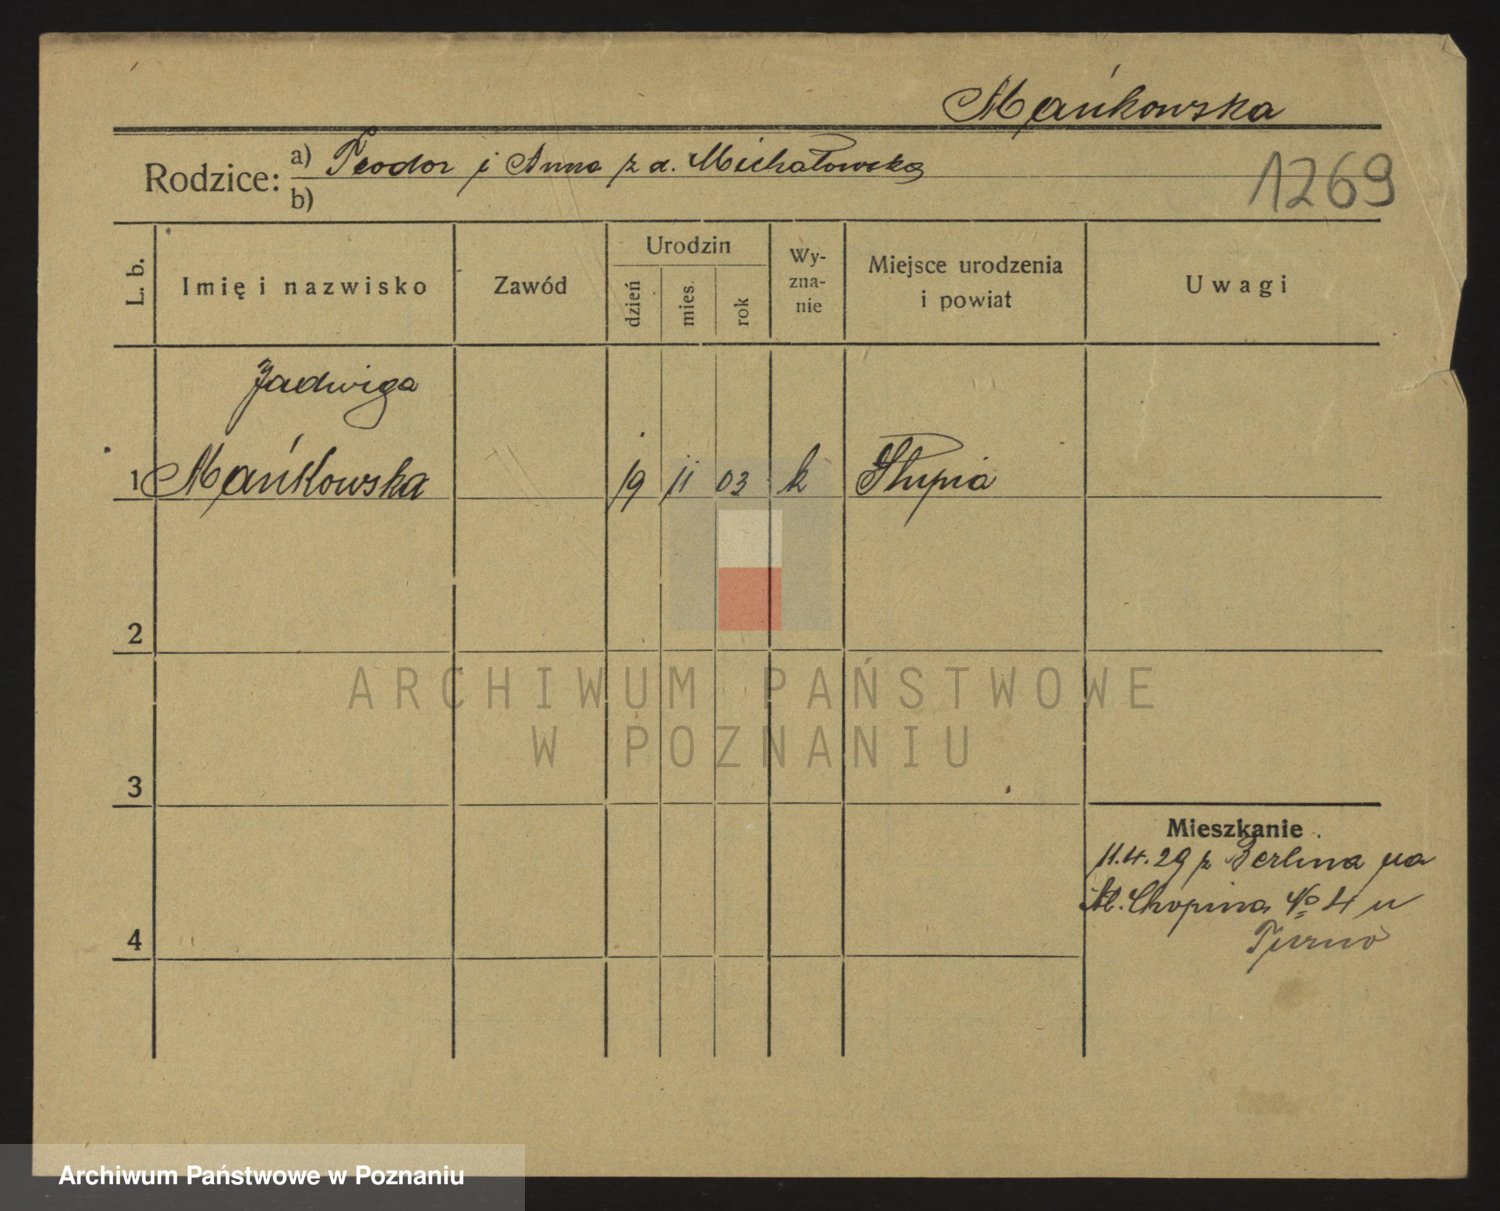 Mańkowska
Rodzice: a) Teodor i Anna z d. Michałowska
b)
1269
L. b.
Imię i nazwisko
Zawód
Urodzin
dzień
mies.
rok
Wy-
zna-
nie
Miejsce urodzenia
i powiat
Uwagi
Jadwiga
1 Mańkowska 19 11 03 k Słupia
2
3
4
Mieszkanie
11.4.29 z Berlina na
Al. Chopina No 4 u
ARCHIWUM PAŃSTWOWE
W POZNANIU
Archiwum Państwowe w Poznaniu